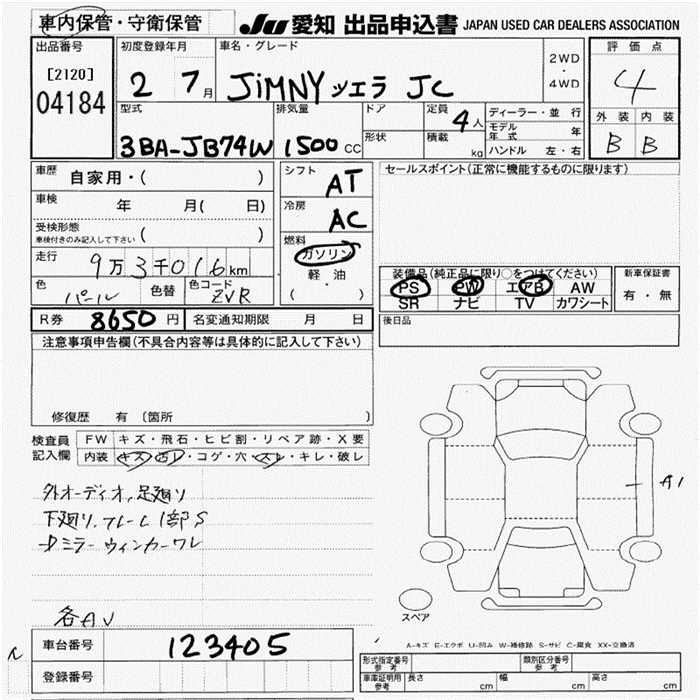 車内保管・守衛保管
JU 愛知 出品申込書 JAPAN USED CAR DEALERS ASSOCIATION
出品番号
[2120]
04184
初度登録年月
2 7月
車名・グレード
JiMNY ツエラ JC
2WD
・
4WD
評価点
4
外装 内装
B B
型式
3BA-JB74W
排気量
1500 CC
ドア
形状
定員
4人
積載
kg
ディーラー・並行
モデル年式 年
ハンドル 左・右
車歴 自家用・( )
車検 年 月( 日)
受検形態
車検付きのみ記入して下さい ( )
走行 9万3千016km
色 パール 色替 色コード ZVR
シフト AT
冷房 AC
燃料
ガソリン
軽油
( ・ )
セールスポイント(正常に機能するものに限ります)
装備品(純正品に限り○をつけてください)
PS PW エアB AW
SR ナビ TV カワシート
新車保証書
有・無
R券 8650 円 名変通知期限 月 日
後日品
注意事項申告欄(不具合内容等は具体的に記入して下さい)
修復歴 有 〔箇所 〕
検査員記入欄
FW キズ・飛石・ヒビ割・リペア跡・X要
内装 キズ・汚レ・コゲ・穴・スレ・キレ・破レ
外オーディオ,足廻り
下廻り.フレーム1部S
Dミラーウィンカーワレ
各AU
A1
スペア
A-キズ E-エクボ U-凹み W-補修跡 S-サビ C-腐食 XX-交換済
車台番号 123405
登録番号
形式指定番号 参考 類別区分番号 参考
車庫証明用 参考 長さ cm 幅 cm 高さ cm